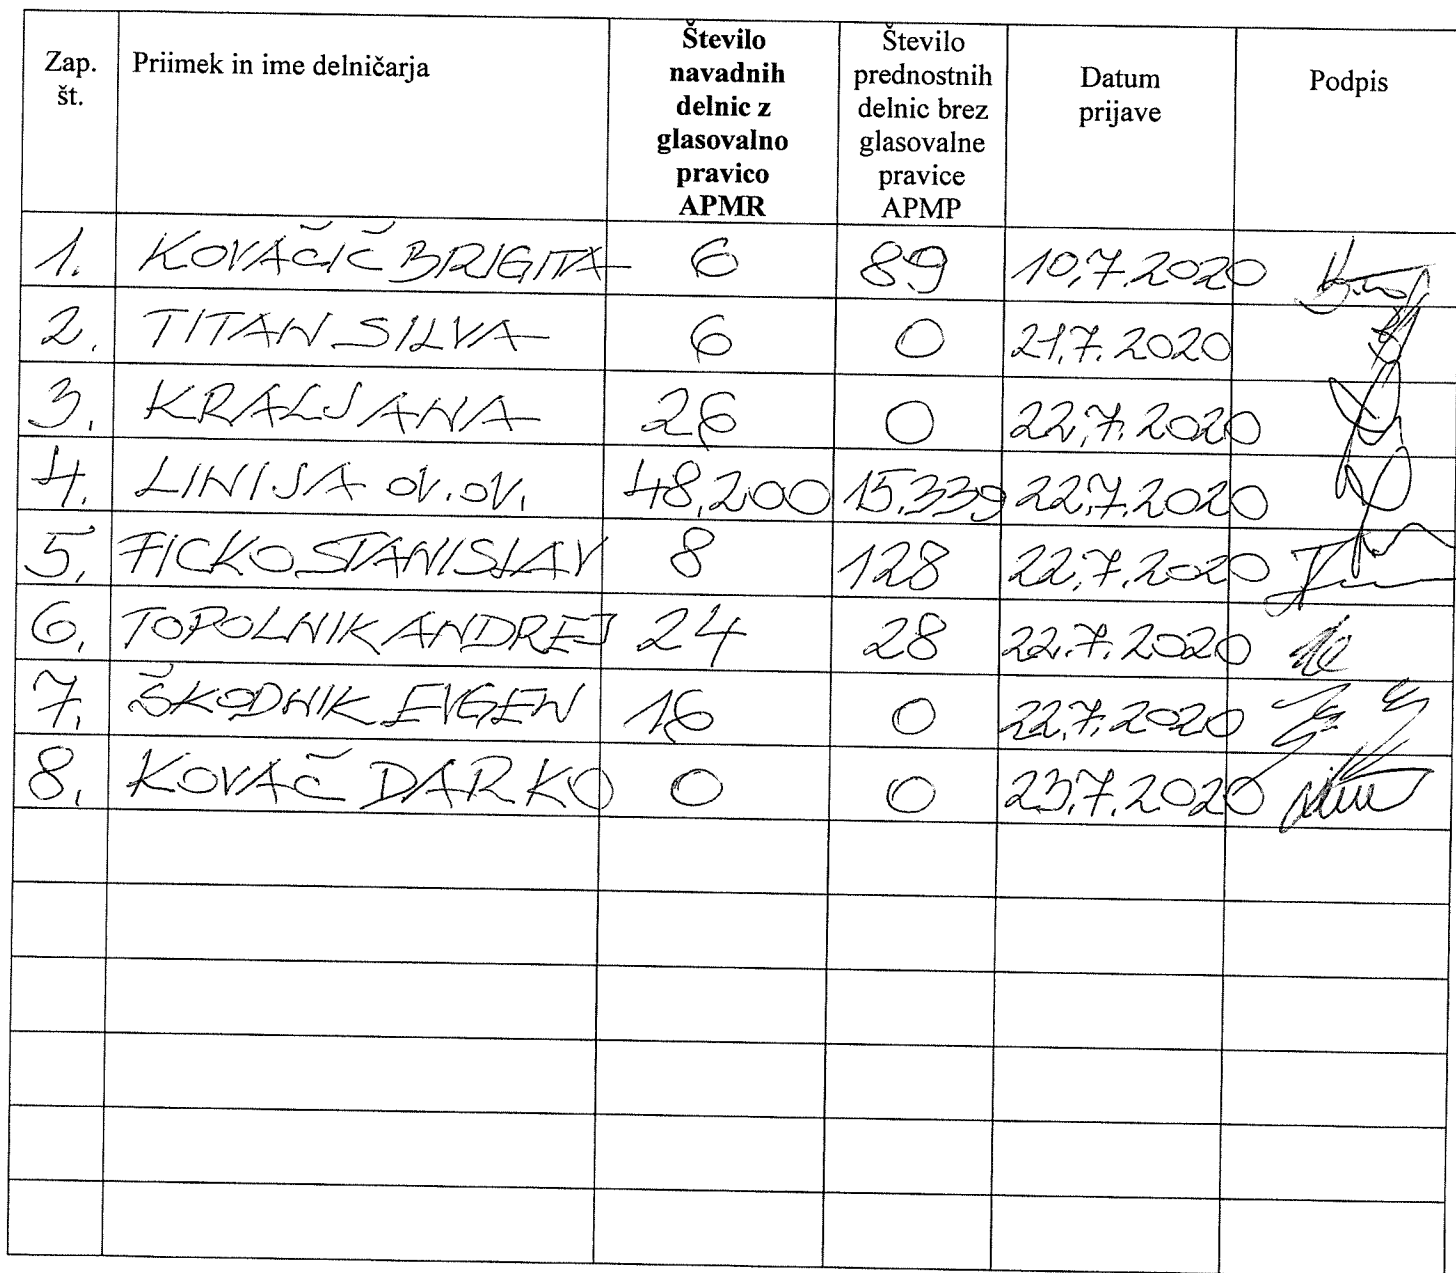 Zap. št.
Priimek in ime delničarja
Število navadnih delnic z glasovalno pravico APMR
Število prednostnih delnic brez glasovalne pravice APMP
Datum prijave
Podpis
1. KOVAČIČ BRIGITA 6 89 10.7.2020
2. TITAN SILVA 6 0 21.7.2020
3. KRALJ ANA 26 0 22.7.2020
4. LINIJA 48.200 15.339 22.7.2020
5. FICKO STANISLAV 8 128 22.7.2020
6. TOPOLNIK ANDREJ 24 28 22.7.2020
7. ŠKODNIK EVGEN 16 0 22.7.2020
8. KOVAČ DARKO 0 0 23.7.2020